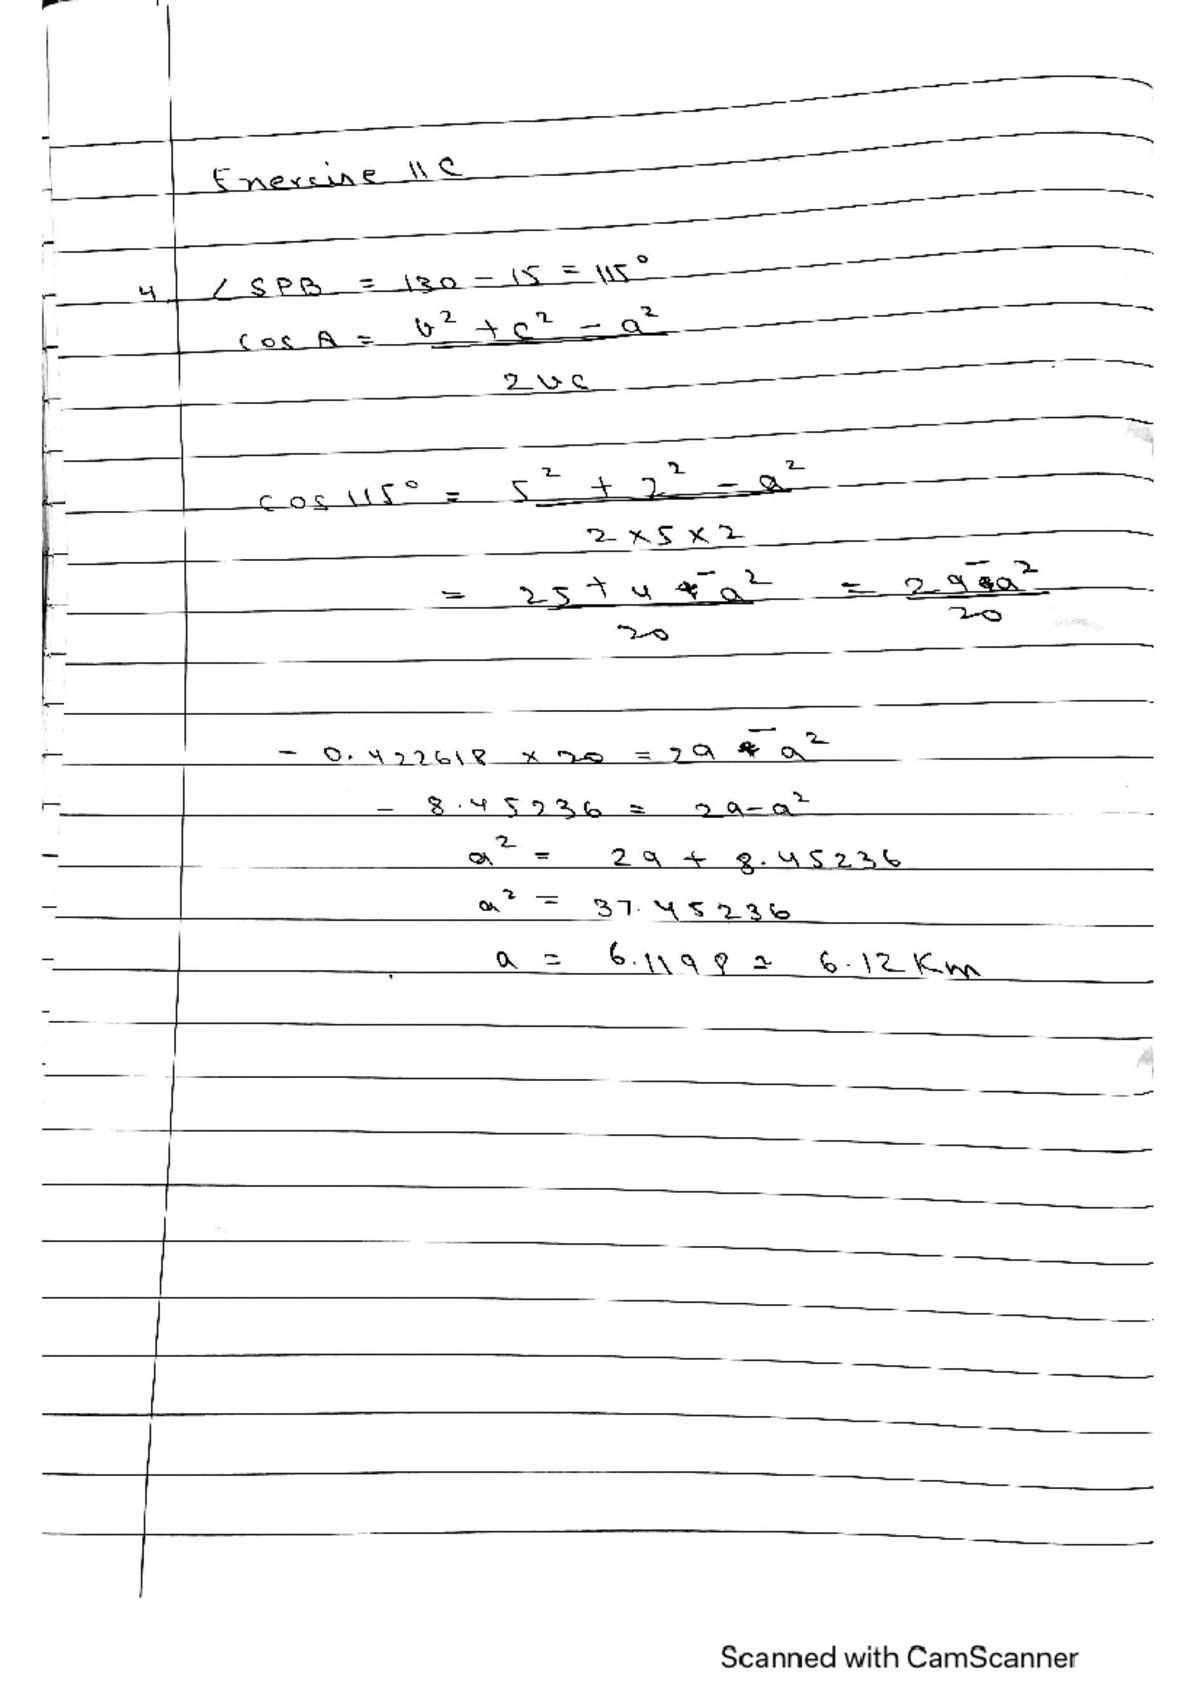 Exercise 11C
4. ∠SPB = 130 - 15 = 115°
cos A = b² + c² - a²
2bc
cos 115° = 5² + 2² - a²
2 × 5 × 2
= 25 + 4 - a² = 29 - a²
20 20
- 0.422618 × 20 = 29 - a²
- 8.45236 = 29 - a²
a² = 29 + 8.45236
a² = 37.45236
a = 6.1198 = 6.12 Km
Scanned with CamScanner